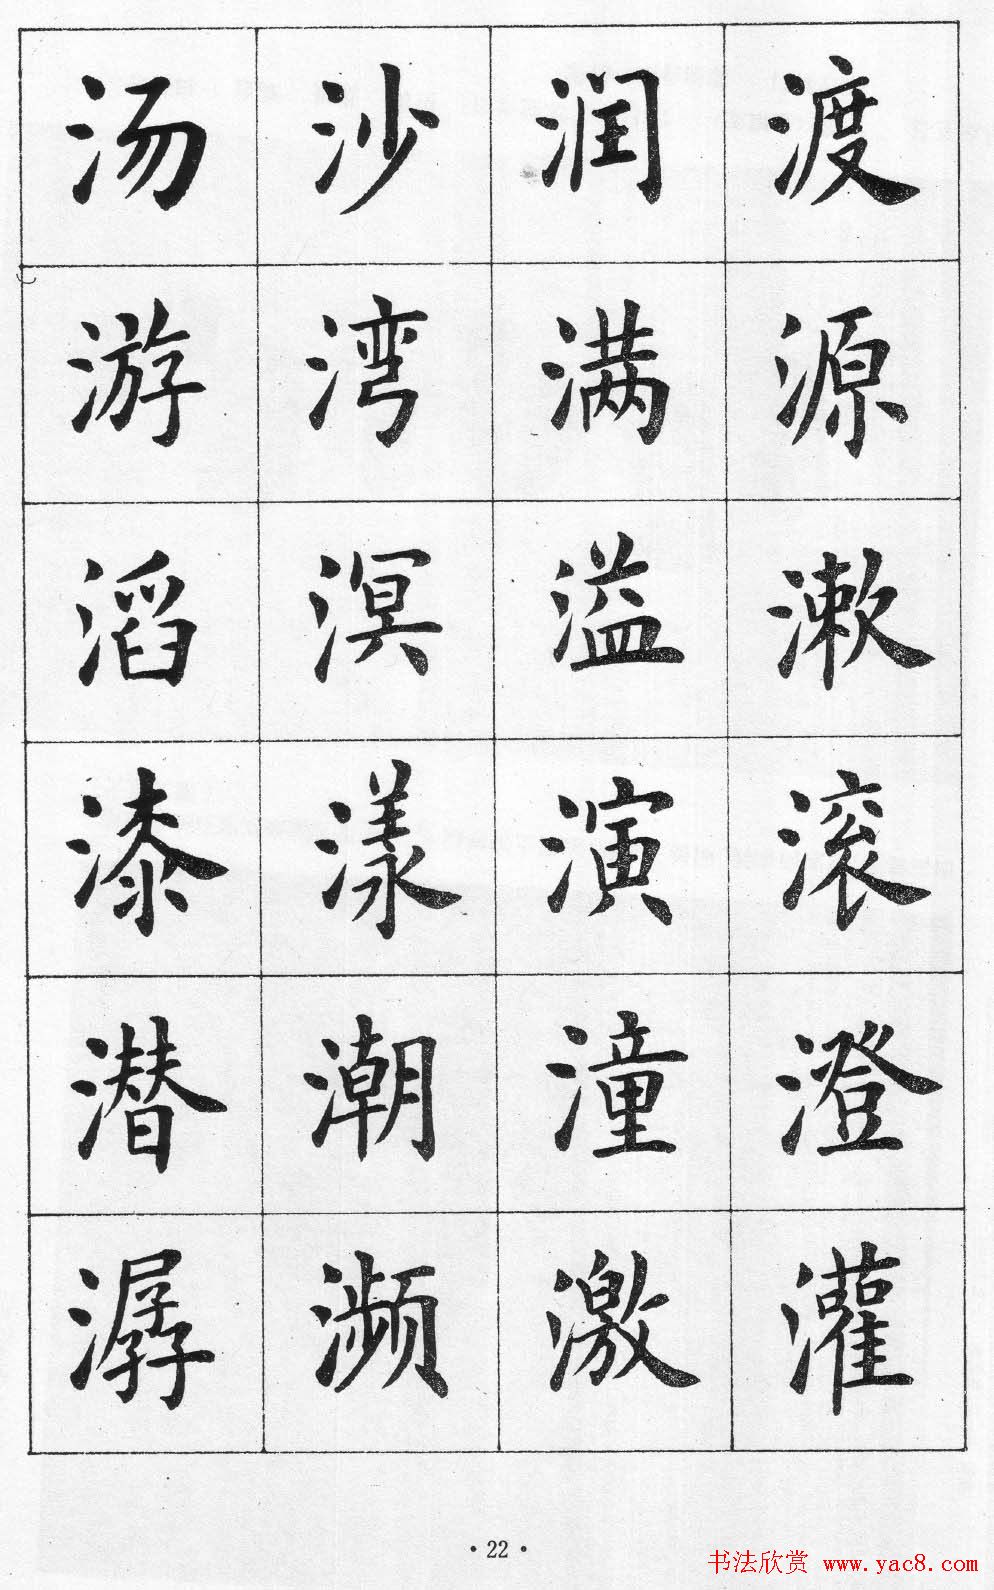 汤沙润渡
游湾满源
滔溟溢漱
漆漾演滚
潜潮潼澄
潺濒激灌
·22·
书法欣赏 www.yac8.com